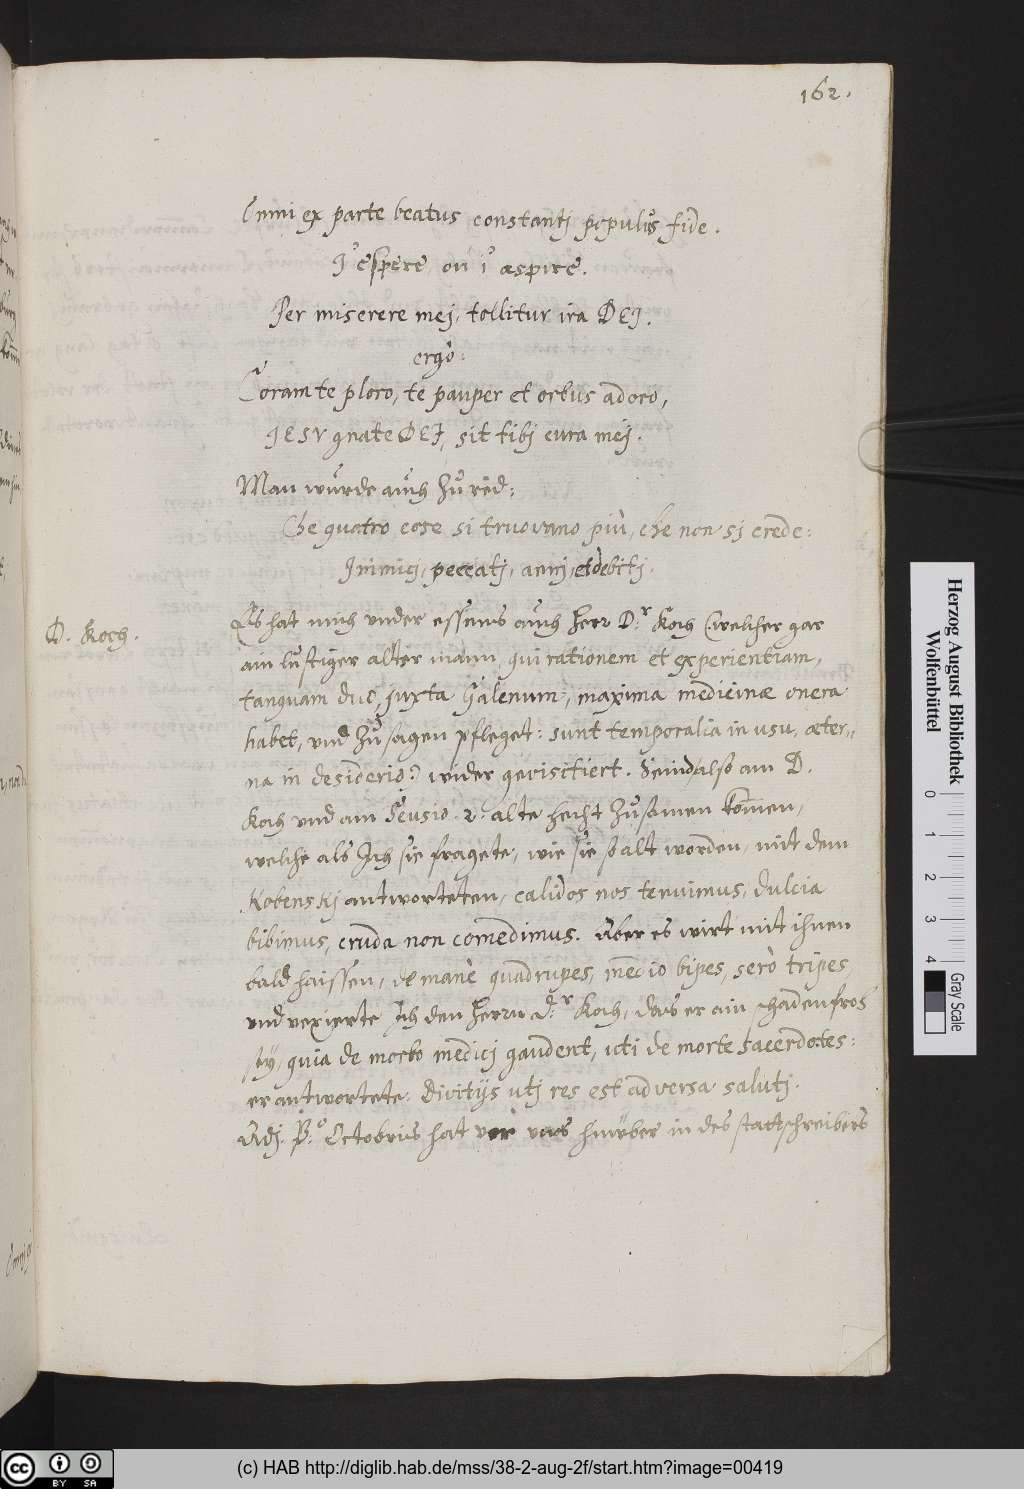 162.
Omni ex parte beatus constantj populus fide.
J' espere, ou j' aspire.
Per miserere mej, tollitur ira DEJ.
ergò:
Coram te ploro, te pauper et ortus adoro,
JESV gnate DEJ, sit tibj cura mej.
Man wurde auch zu red:
Che quatro cose si truovano più, che non si crede:
Inimicj, peccatj, annj, et debitj.
D. Koch.
Es hat mich under essens auch Herr D.r Koch (welcher gar
ain lustiger alter mann, qui rationem et experientiam,
tanquam duo, juxta Galenum, maxima medicinæ onera
habet, und zu sagen pfleget: sunt temporalia in usu, æter-
na in desiderio:) wider gevisitiert. Seind also am D.
Koch und am Seusio .2. alte hecht zusamen komen,
welche als Ich sie fragete, wie sie so alt worden, mit dem
Kobenskj antworteten, calidos nos tenuimus, dulcia
bibimus, cruda non comedimus. Aber es wirt mit ihnen
bald haissen, de manè quadrupes, medio bipes, serò tripes,
und vexierte Ich den Herrn D.r Koch, das er ain schadenfros
sey, quia de morbo medicj gaudent, uti de morte sacerdotes:
er antwortete: Divitijs utj res est adversa salutj.
Adj. P.o Octobris hat vor uns hinüber in des stattschreibers
Herzog August Bibliothek
Wolfenbüttel
0 1 2 3 4 Gray Scale
cc BY SA
(c) HAB http://diglib.hab.de/mss/38-2-aug-2f/start.htm?image=00419